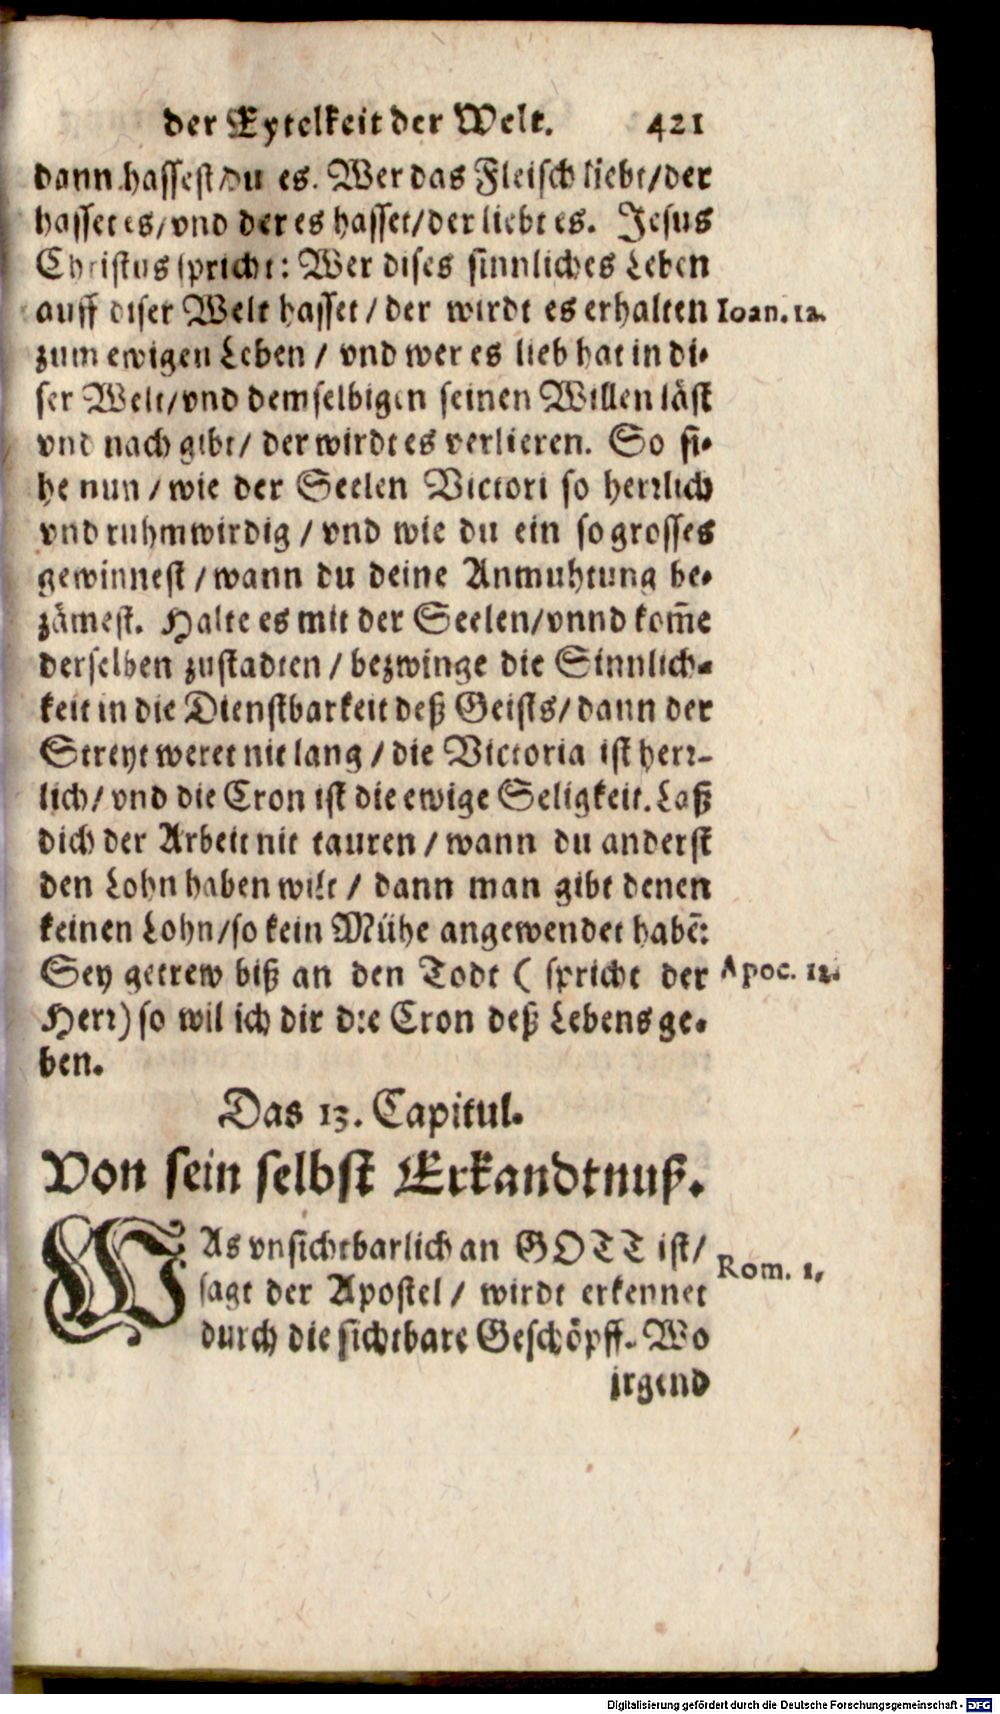 der Eytelkeit der Welt. 421
dann hassest du es. Wer das Fleisch liebt/der
hasset es/vnd der es hasset/der liebt es. Jesus
Christus spricht: Wer dises sinnliches Leben
auff diser Welt hasset/der wirdt es erhalten Ioan. 12.
zum ewigen Leben/vnd wer es lieb hat in di-
ser Welt/vnd demselbigen seinen Willen läst
vnd nach gibt/der wirdt es verlieren. So si-
he nun/wie der Seelen Victori so herzlich
vnd ruhmwirdig/vnd wie du ein so grosses
gewinnest/wann du deine Anmuhtung be-
zämest. Halte es mit der Seelen/vnnd kom̄e
derselben zustadten/bezwinge die Sinnlich-
keit in die Dienstbarkeit deß Geists/dann der
Streyt weret nit lang/die Victoria ist herz-
lich/vnd die Cron ist die ewige Seligkeit. Laß
dich der Arbeit nit tauren/wann du anderst
den Lohn haben wilt/dann man gibt denen
keinen Lohn/so kein Mühe angewendet habē:
Sey getrew biß an den Todt (spricht der Apoc. 12.
Herz) so wil ich dir die Cron deß Lebens ge-
ben.
Das 13. Capitul.
Von sein selbst Erkandtnuß.
WAs vnsichtbarlich an GOTT ist/
sagt der Apostel/wirdt erkennet Rom. 1,
durch die sichtbare Geschöpff. Wo
irgend
Digitalisierung gefördert durch die Deutsche Forschungsgemeinschaft - DFG